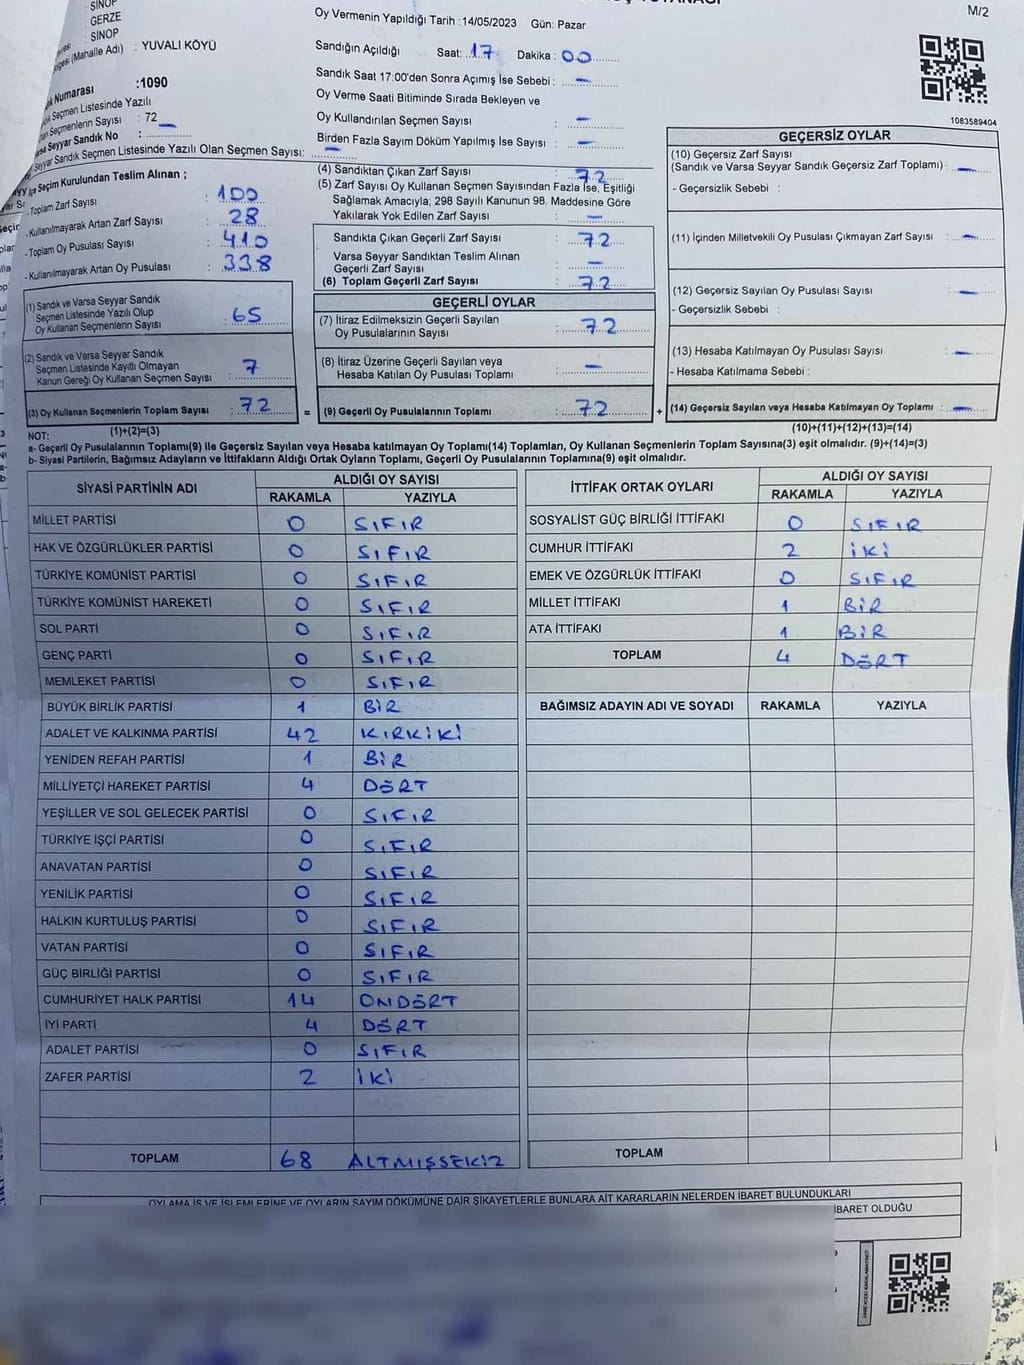 M/2
SİNOP
GERZE
SİNOP
(Mahalle Adı) : YUVALI KÖYÜ
Numarası :1090
Seçmen Listesinde Yazılı
Seçmenlerin Sayısı : 72 –
Seyyar Sandık No :
Seyyar Sandık Seçmen Listesinde Yazılı Olan Seçmen Sayısı: –
Seçim Kurulundan Teslim Alınan ;
- Toplam Zarf Sayısı : 100
- Kullanılmayarak Artan Zarf Sayısı : 28
- Toplam Oy Pusulası Sayısı : 410
- Kullanılmayarak Artan Oy Pusulası : 338
(1) Sandık ve Varsa Seyyar Sandık
Seçmen Listesinde Yazılı Olup
Oy Kullanan Seçmenlerin Sayısı : 65
(2) Sandık ve Varsa Seyyar Sandık
Seçmen Listesinde Kayıtlı Olmayan
Kanun Gereği Oy Kullanan Seçmen Sayısı : 7
(3) Oy Kullanan Seçmenlerin Toplam Sayısı : 72
(1)+(2)=(3)
Oy Vermenin Yapıldığı Tarih :14/05/2023 Gün: Pazar
Sandığın Açıldığı Saat: 17 Dakika : 00
Sandık Saat 17:00'den Sonra Açımış İse Sebebi : –
Oy Verme Saati Bitiminde Sırada Bekleyen ve
Oy Kullandırılan Seçmen Sayısı : –
Birden Fazla Sayım Döküm Yapılmış İse Sayısı : –
(4) Sandıktan Çıkan Zarf Sayısı : 72
(5) Zarf Sayısı Oy Kullanan Seçmen Sayısından Fazla İse, Eşitliği
Sağlamak Amacıyla; 298 Sayılı Kanunun 98. Maddesine Göre
Yakılarak Yok Edilen Zarf Sayısı : –
Sandıkta Çıkan Geçerli Zarf Sayısı : 72
Varsa Seyyar Sandıktan Teslim Alınan
Geçerli Zarf Sayısı : –
(6) Toplam Geçerli Zarf Sayısı : 72
GEÇERLİ OYLAR
(7) İtiraz Edilmeksizin Geçerli Sayılan
Oy Pusulalarının Sayısı : 72
(8) İtiraz Üzerine Geçerli Sayılan veya
Hesaba Katılan Oy Pusulası Toplamı : –
= (9) Geçerli Oy Pusulalarının Toplamı : 72
1083589404
GEÇERSİZ OYLAR
(10) Geçersiz Zarf Sayısı
(Sandık ve Varsa Seyyar Sandık Geçersiz Zarf Toplamı) : –
- Geçersizlik Sebebi :
(11) İçinden Milletvekili Oy Pusulası Çıkmayan Zarf Sayısı : –
(12) Geçersiz Sayılan Oy Pusulası Sayısı : –
- Geçersizlik Sebebi :
(13) Hesaba Katılmayan Oy Pusulası Sayısı : –
- Hesaba Katılmama Sebebi :
+ (14) Geçersiz Sayılan veya Hesaba Katılmayan Oy Toplamı : –
(10)+(11)+(12)+(13)=(14)
NOT:
a- Geçerli Oy Pusulalarının Toplamı(9) ile Geçersiz Sayılan veya Hesaba katılmayan Oy Toplamı(14) Toplamları, Oy Kullanan Seçmenlerin Toplam Sayısına(3) eşit olmalıdır. (9)+(14)=(3)
b- Siyasi Partilerin, Bağımsız Adayların ve İttifakların Aldığı Ortak Oyların Toplamı, Geçerli Oy Pusulalarının Toplamına(9) eşit olmalıdır.
SİYASİ PARTİNİN ADI ALDIĞI OY SAYISI
RAKAMLA YAZIYLA
MİLLET PARTİSİ 0 SIFIR
HAK VE ÖZGÜRLÜKLER PARTİSİ 0 SIFIR
TÜRKİYE KOMÜNİST PARTİSİ 0 SIFIR
TÜRKİYE KOMÜNİST HAREKETİ 0 SIFIR
SOL PARTİ 0 SIFIR
GENÇ PARTİ 0 SIFIR
MEMLEKET PARTİSİ 0 SIFIR
BÜYÜK BİRLİK PARTİSİ 1 BİR
ADALET VE KALKINMA PARTİSİ 42 KIRKİKİ
YENİDEN REFAH PARTİSİ 1 BİR
MİLLİYETÇİ HAREKET PARTİSİ 4 DÖRT
YEŞİLLER VE SOL GELECEK PARTİSİ 0 SIFIR
TÜRKİYE İŞÇİ PARTİSİ 0 SIFIR
ANAVATAN PARTİSİ 0 SIFIR
YENİLİK PARTİSİ 0 SIFIR
HALKIN KURTULUŞ PARTİSİ 0 SIFIR
VATAN PARTİSİ 0 SIFIR
GÜÇ BİRLİĞİ PARTİSİ 0 SIFIR
CUMHURİYET HALK PARTİSİ 14 ONDÖRT
İYİ PARTİ 4 DÖRT
ADALET PARTİSİ 0 SIFIR
ZAFER PARTİSİ 2 İKİ
TOPLAM 68 ALTMIŞSEKİZ
İTTİFAK ORTAK OYLARI ALDIĞI OY SAYISI
RAKAMLA YAZIYLA
SOSYALİST GÜÇ BİRLİĞİ İTTİFAKI 0 SIFIR
CUMHUR İTTİFAKI 2 İKİ
EMEK VE ÖZGÜRLÜK İTTİFAKI 0 SIFIR
MİLLET İTTİFAKI 1 BİR
ATA İTTİFAKI 1 BİR
TOPLAM 4 DÖRT
BAĞIMSIZ ADAYIN ADI VE SOYADI RAKAMLA YAZIYLA
TOPLAM
OYLAMA İŞ VE İŞLEMLERİNE VE OYLARIN SAYIM DÖKÜMÜNE DAİR ŞİKAYETLERLE BUNLARA AİT KARARLARIN NELERDEN İBARET BULUNDUKLARI
İBARET OLDUĞU